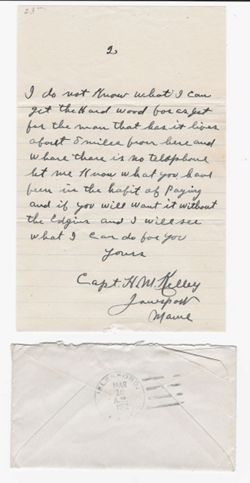 2
I do not Know what I can
get the Hard wood for as yet
for the man that has it lives
about 5 miles from here and
where there is no telephone
let me Know what you have
been in the habit of Paying
and if you will want it without
the Edgins and I will see
what I can do for you
Yours
Capt H. M. Kelley
Jonesport
Maine
MAR